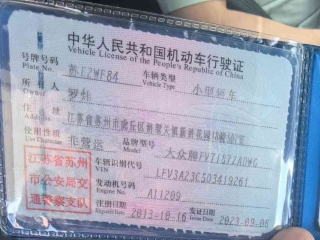 中华人民共和国机动车行驶证
Vehicle License of the People's Republic of China
号牌号码 车辆类型 小型轿车
Plate No. Vehicle Type
所有人
Owner
住址 江苏省苏州市虎丘区
Address
使用性质 非营运 品牌型号 大众牌
Use Character Model
江苏省苏州
市公安局交
通警察支队
车辆识别代号 LFV3A23C503419261
VIN
发动机号码 A11209
Engine No.
注册日期 2013-10-16 发证日期 2023-09-06
Register Date Issue Date